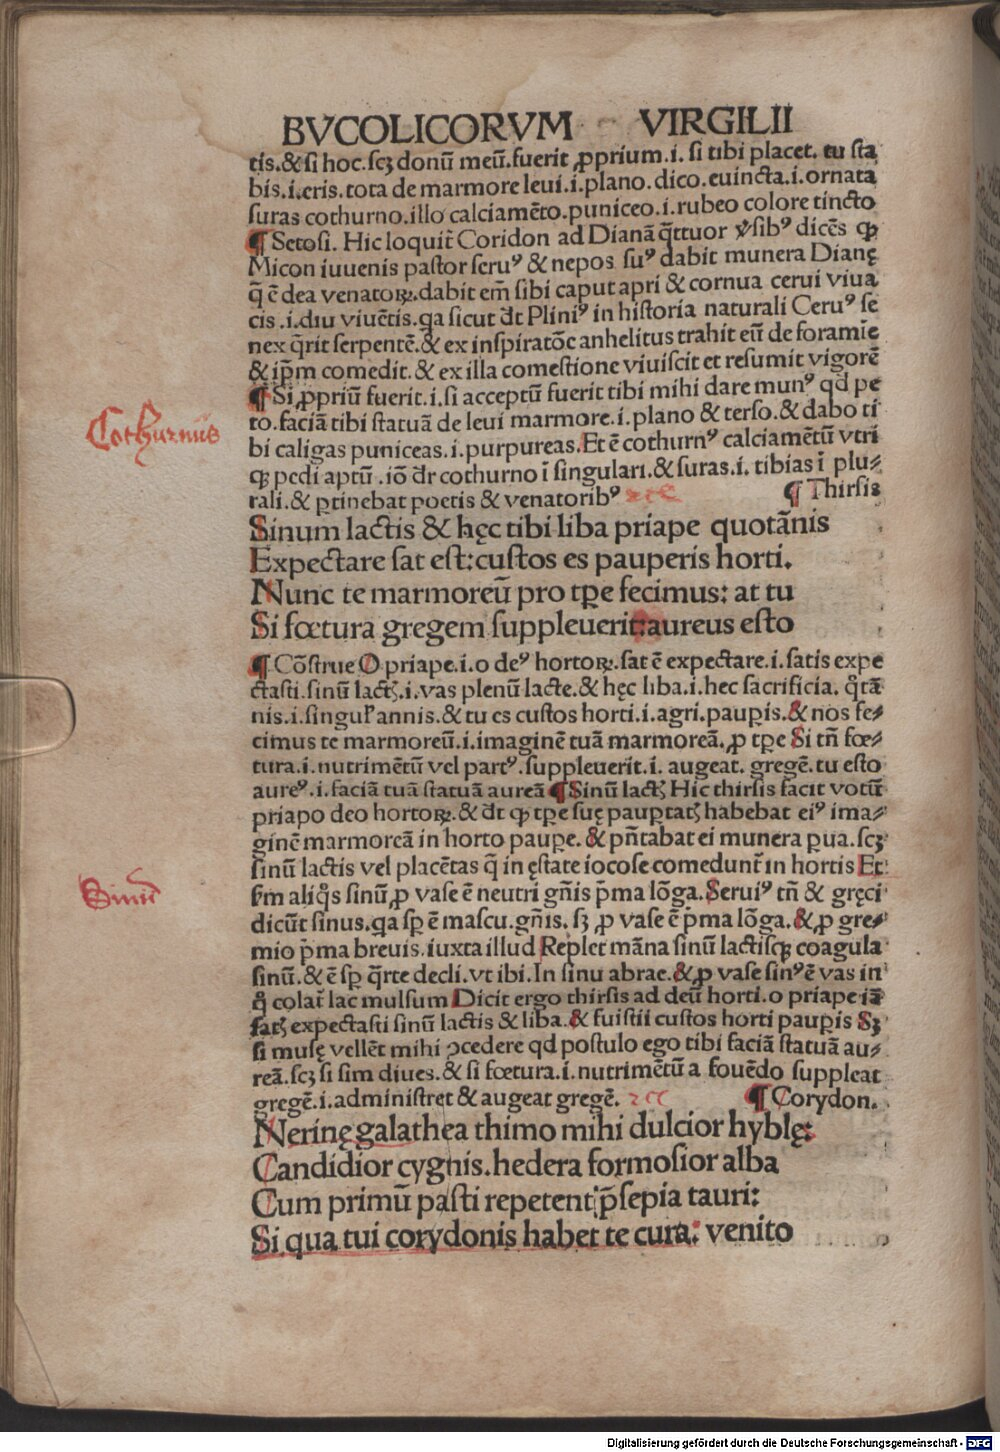 BVCOLICORVM VIRGILII
tis.&si hoc.scꝫ donū meū.fuerit ꝓprium.i. si tibi placet. tu sta
bis.i.eris.tota de marmore leui.i.plano.dico.euincta.i.ornata
suras cothurno.illo calciamēto.puniceo.i.rubeo colore tincto
¶ Setosi. Hic loquit̄ Coridon ad Dianā q̄ttuor v̄sibꝰ dicēs ꝙ
Micon iuuenis pastor seruꝰ & nepos suꝰ dabit munera Dianę
q̄ ē dea venatoꝝ.dabit em̄ sibi caput apri & cornua cerui viua
cis.i.diu viuētis.qa sicut d̄t Pliniꝰ in historia naturali Ceruꝰ se
nex q̄rit serpentē.& ex inspiratōe anhelitus trahit eū de foramīe
& ip̄m comedit.& ex illa comestione viuiscit et resumit vigorē
¶ Si ꝓpriū fuerit.i.si acceptū fuerit tibi mihi dare munꝰ qd pe
to.faciā tibi statuā de leui marmore.i.plano & terso.& dabo ti
bi caligas puniceas.i.purpureas.Et ē cothurnꝰ calciamētū vtri
qꝫ pedi aptū.iō d̄r cothurno ī singulari.& suras.i.tibias ī plu⸗
rali.& ꝑtinebat poetis & venatoribꝰ
¶ Thirsis
Cothurnus
Sinum lactis & hęc tibi liba priape quotānis
Expectare sat est:custos es pauperis horti.
Nunc te marmoreū pro tꝑe fecimus: at tu
Si fœtura gregem suppleuerit:aureus esto
¶ Cōstrue O priape.i.o deꝰ hortoꝝ.sat ē expectare.i.satis expe
ctasti.sinū lactꝭ.i.vas plenū lacte.& hęc liba.i.hec sacrificia. q̊tā
nis.i.singul̓ annis.& tu es custos horti.i.agri.pauꝑis.& nos fe⸗
cimus te marmoreū.i.imaginē tuā marmoreā.ꝓ tꝑe Si tn̄ fœ⸗
tura.i.nutrimētū vel partꝰ.suppleuerit.i. augeat. gregē.tu esto
aureꝰ.i.faciā tuā statuā aureā ¶ Sinū lactꝭ Hic thirsis facit votū
priapo deo hortoꝝ.& d̄t ꝙ tꝑe suę pauꝑtatꝭ habebat eiꝰ ima⸗
ginē marmoreā in horto pauꝑe. & pn̄tabat ei munera ꝑua.scꝫ
sinū lactis vel placētas q̄ in ęstate iocose comedunt̄ in hortis Et
Sinū
s̄m aliq̊s sinū ꝓ vase ē neutri gn̄is p̄ma lōga. Seruiꝰ tn̄ & gręci
dicūt sinus.qa sꝑ ē mascu.gn̄is. sꝫ ꝓ vase ē p̄ma lōga.&ꝓ gre⸗
mio p̄ma breuis.iuxta illud Replet māna sinū lactisqꝫ coagula
sinū.& ē sꝑ q̄rte decli.vt ibi.In sinu abrae.&ꝓ vase sinꝰē vas in
q̊ colat̄ lac mulsum Dicit ergo thirsis ad deū horti.o priape iā
satꝭ expectasti sinū lactis & liba.& fuistii custos horti pauꝑis Sꝫ
si musę vellēt mihi ꝯcedere qd postulo ego tibi faciā statuā au⸗
reā.scꝫ si sim diues.& si fœtura.i.nutrimētū a fouēdo suppleat
gregē.i.administret & augeat gregē.
¶ Corydon.
Nerinę galathea thimo mihi dulcior hyblę:
Candidior cygnis.hedera formosior alba
Cum primū pasti repetent p̄sepia tauri:
Si qua tui corydonis habet te cura: venito
Digitalisierung gefördert durch die Deutsche Forschungsgemeinschaft - DFG